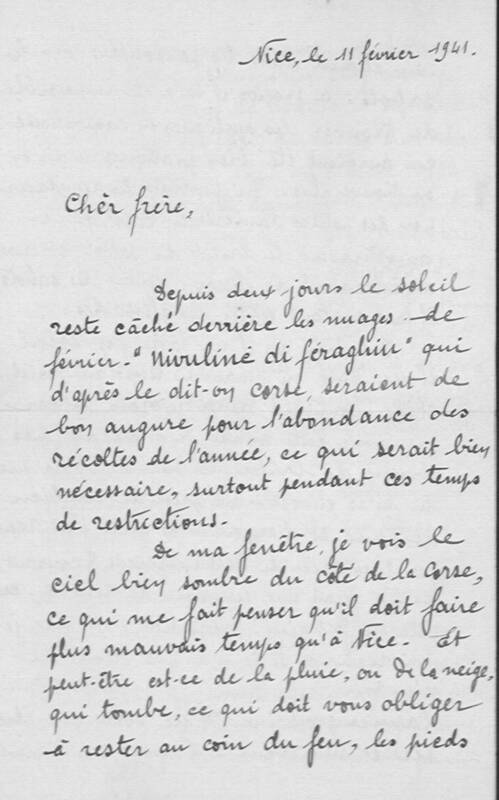 Nice, le 11 février 1941.
Chèr frère,
Depuis deux jours le soleil
reste câché derrière les nuages de
février. "Nivuline di féraghiu" qui
d'après le dit-on corse, seraient de
bon augure pour l'abondance des
récoltes de l'année, ce qui serait bien
nécessaire, surtout pendant ces temps
de restrictions.
De ma fenêtre, je vois le
ciel bien sombre du côté de la Corse,
ce qui me fait penser qu'il doit faire
plus mauvais temps qu'à Nice. Et
peut-être est-ce de la pluie, ou de la neige,
qui tombe, ce qui doit vous obliger
à rester au coin du feu, les pieds